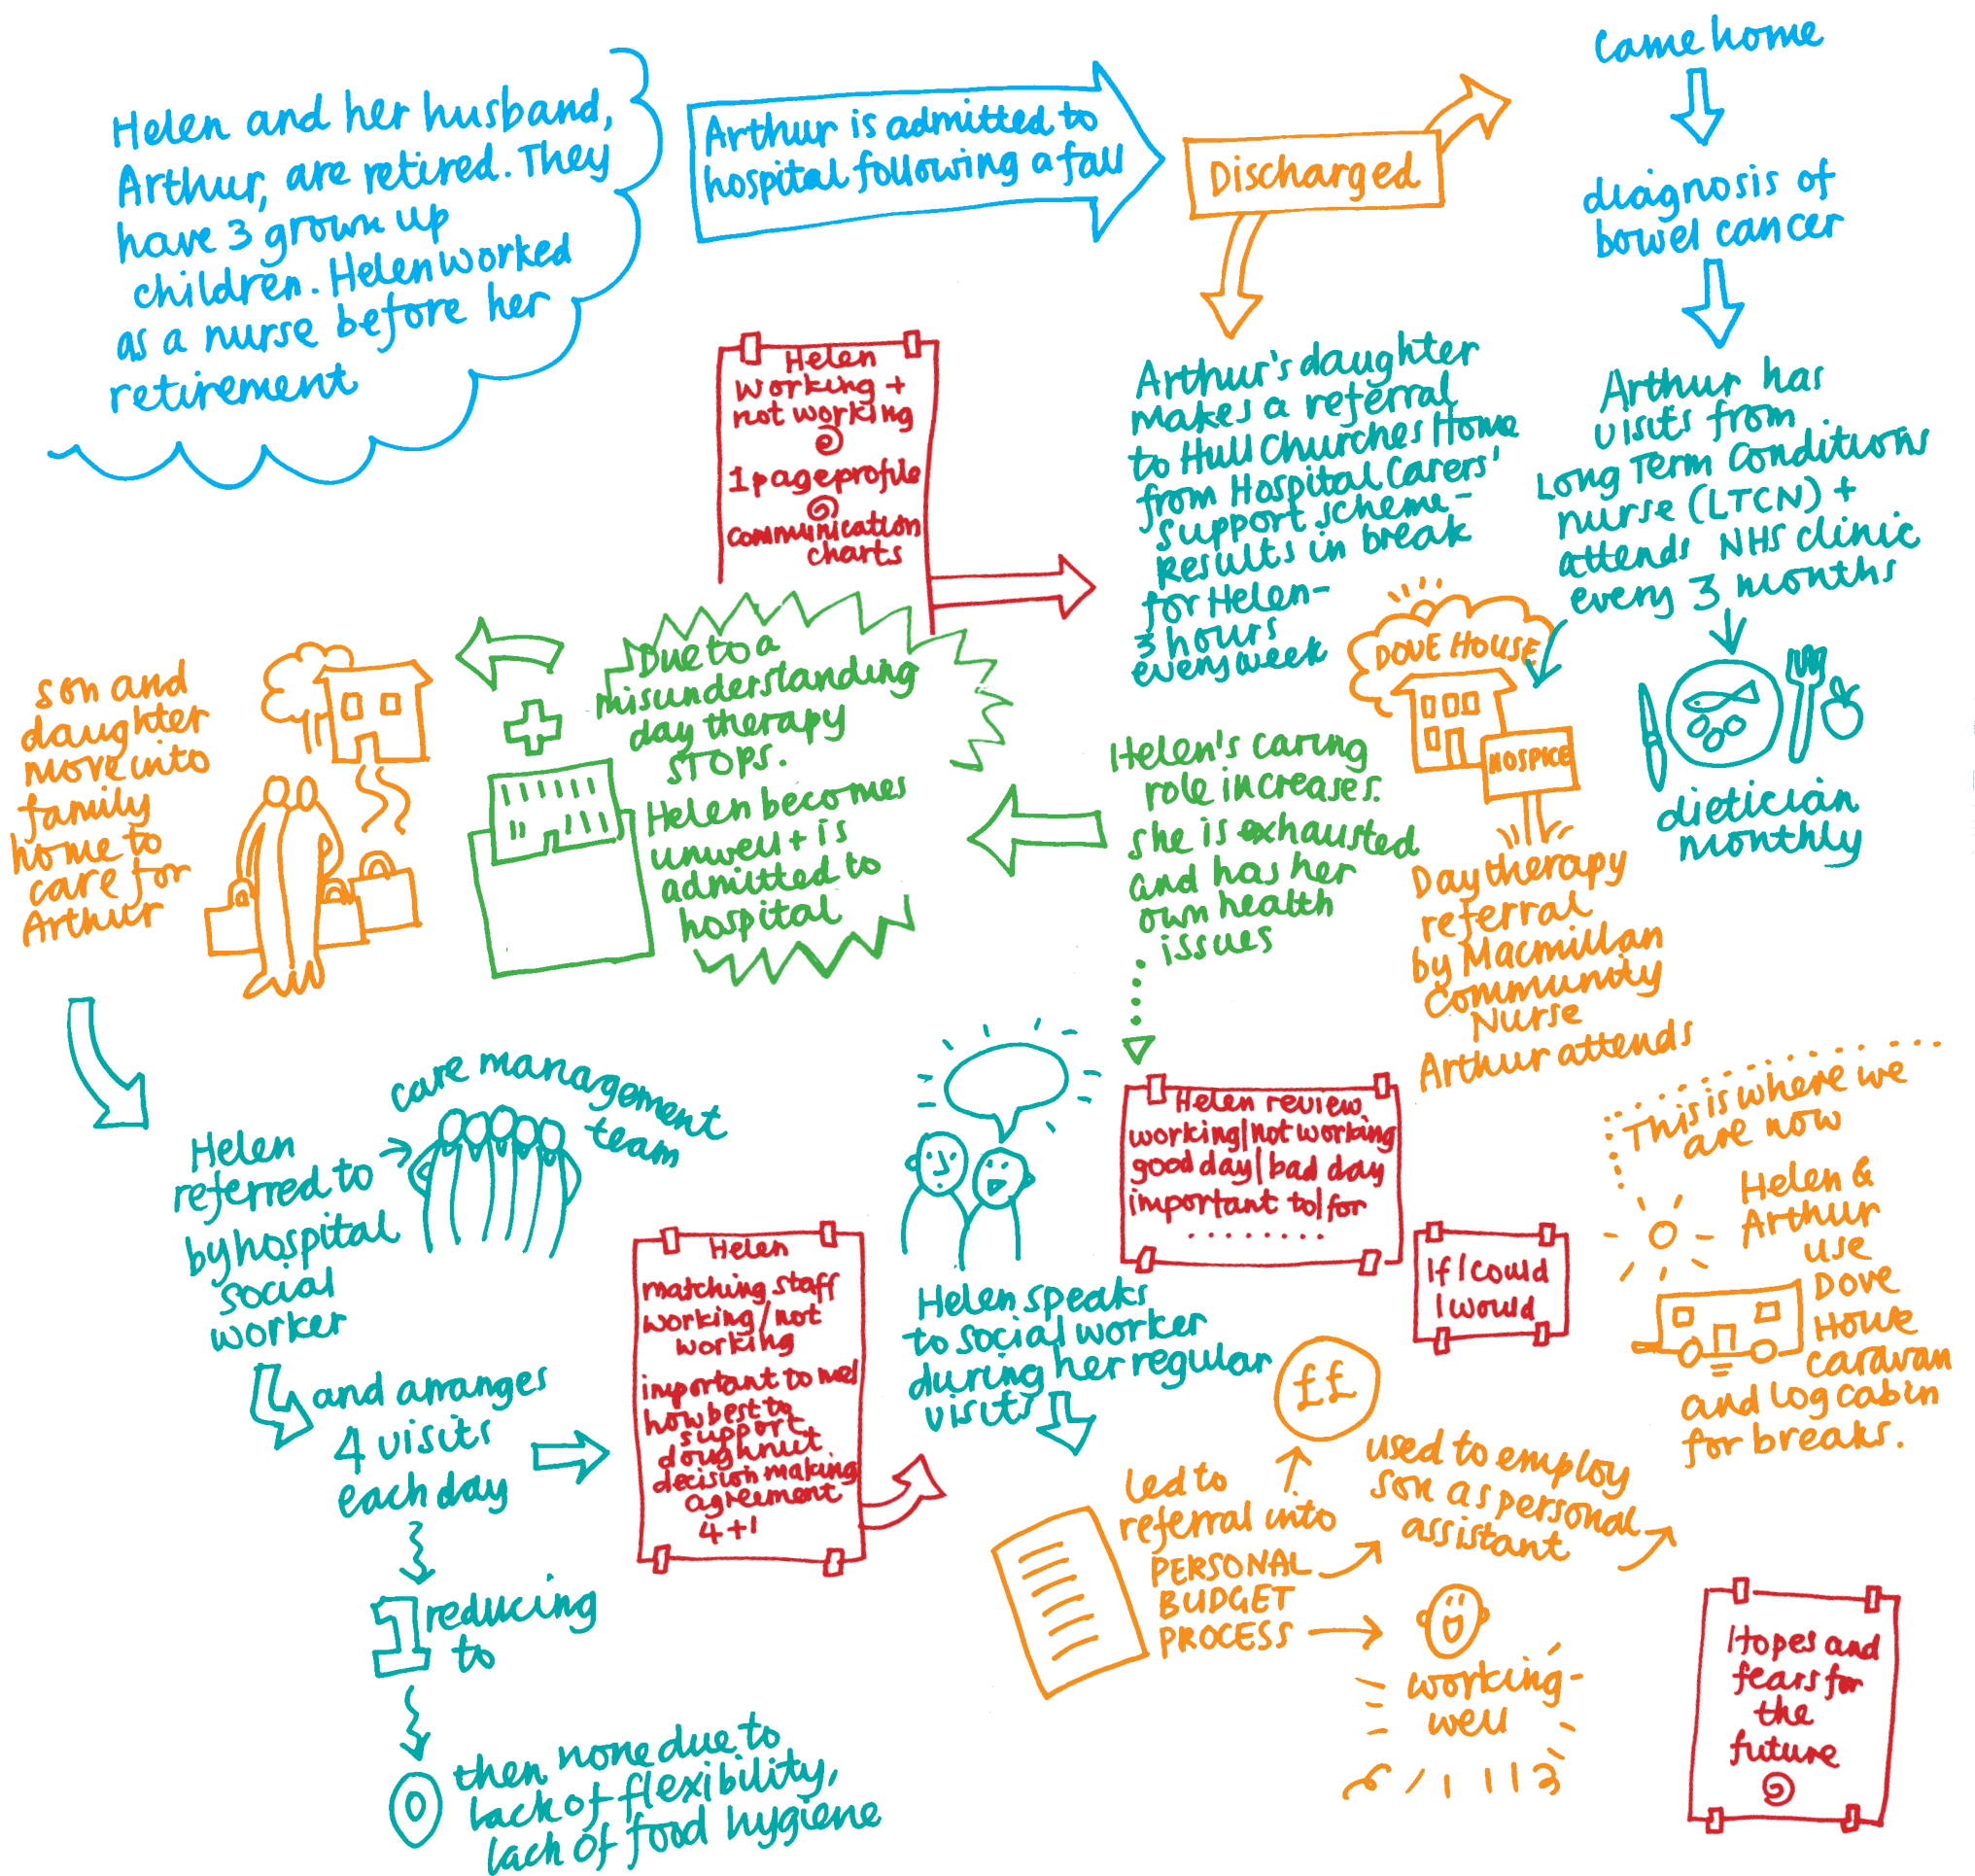 Helen and her husband,
Arthur, are retired. They
have 3 grown up
children. Helen worked
as a nurse before her
retirement
Arthur is admitted to
hospital following a fall
Discharged
came home
diagnosis of
bowel cancer
Arthur has
visits from
Long Term Conditions
nurse (LTCN) +
attends NHS clinic
every 3 months
dietician
monthly
DOVE HOUSE
HOSPICE
Day therapy
referral
by Macmillan
Community
Nurse
Arthur attends
Arthur's daughter
makes a referral
to Hull Churches Home
from Hospital Carers'
support scheme -
Results in break
for Helen -
3 hours
every week
Helen
working +
not working
1 page profile
communication
charts
Helen's caring
role increases.
she is exhausted
and has her
own health
issues
Due to a
misunderstanding
day therapy
STOPS.
Helen becomes
unwell + is
admitted to
hospital
son and
daughter
move into
family
home to
care for
Arthur
care management
team
Helen
referred to
by hospital
social
worker
and arranges
4 visits
each day
1 reducing
to
0 then none due to
lack of flexibility,
lack of food hygiene
Helen
matching staff
working / not
working
important to me/
how best to
support
doughnut
decision making
agreement
4 + 1
Helen speaks
to social worker
during her regular
visits
Helen review
working/not working
good day/bad day
important to/for
........
If I could
I would
Led to
referral into
PERSONAL
BUDGET
PROCESS
££
used to employ
son as personal
assistant
working
well
This is where we
are now
Helen &
Arthur
use
Dove
House
caravan
and log cabin
for breaks.
Hopes and
fears for
the
future